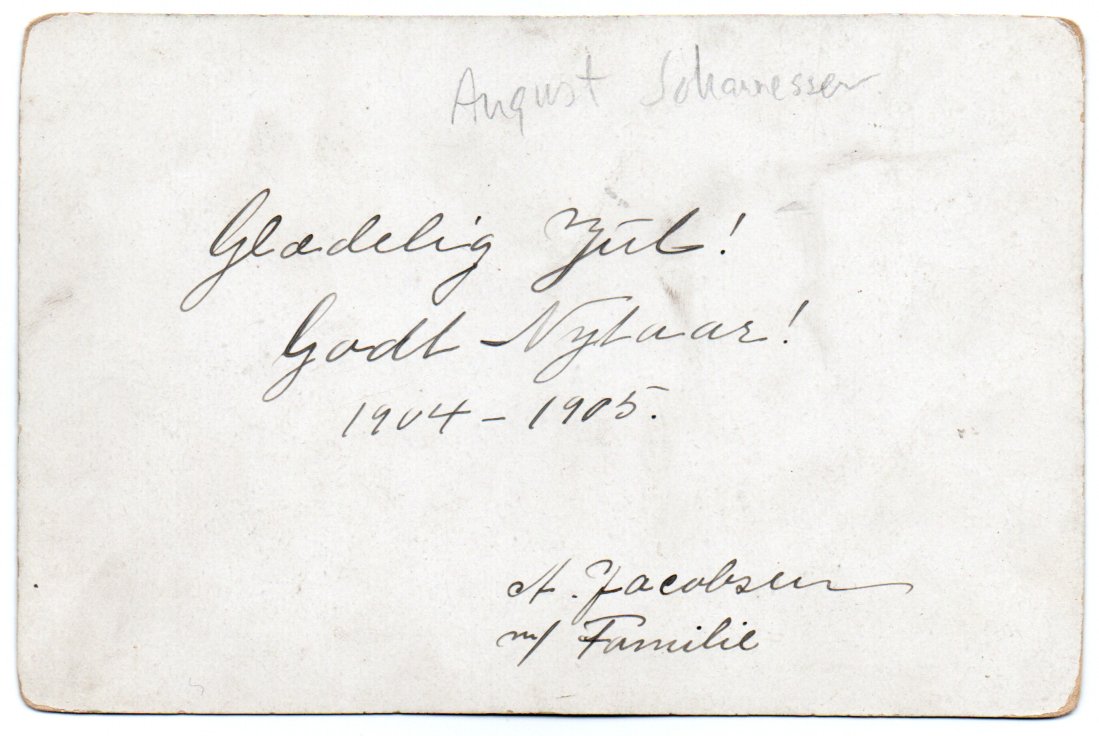 August Johannessen
Glædelig Jul!
Godt Nytaar!
1904 – 1905.
A. Jacobsen
m/ Familie